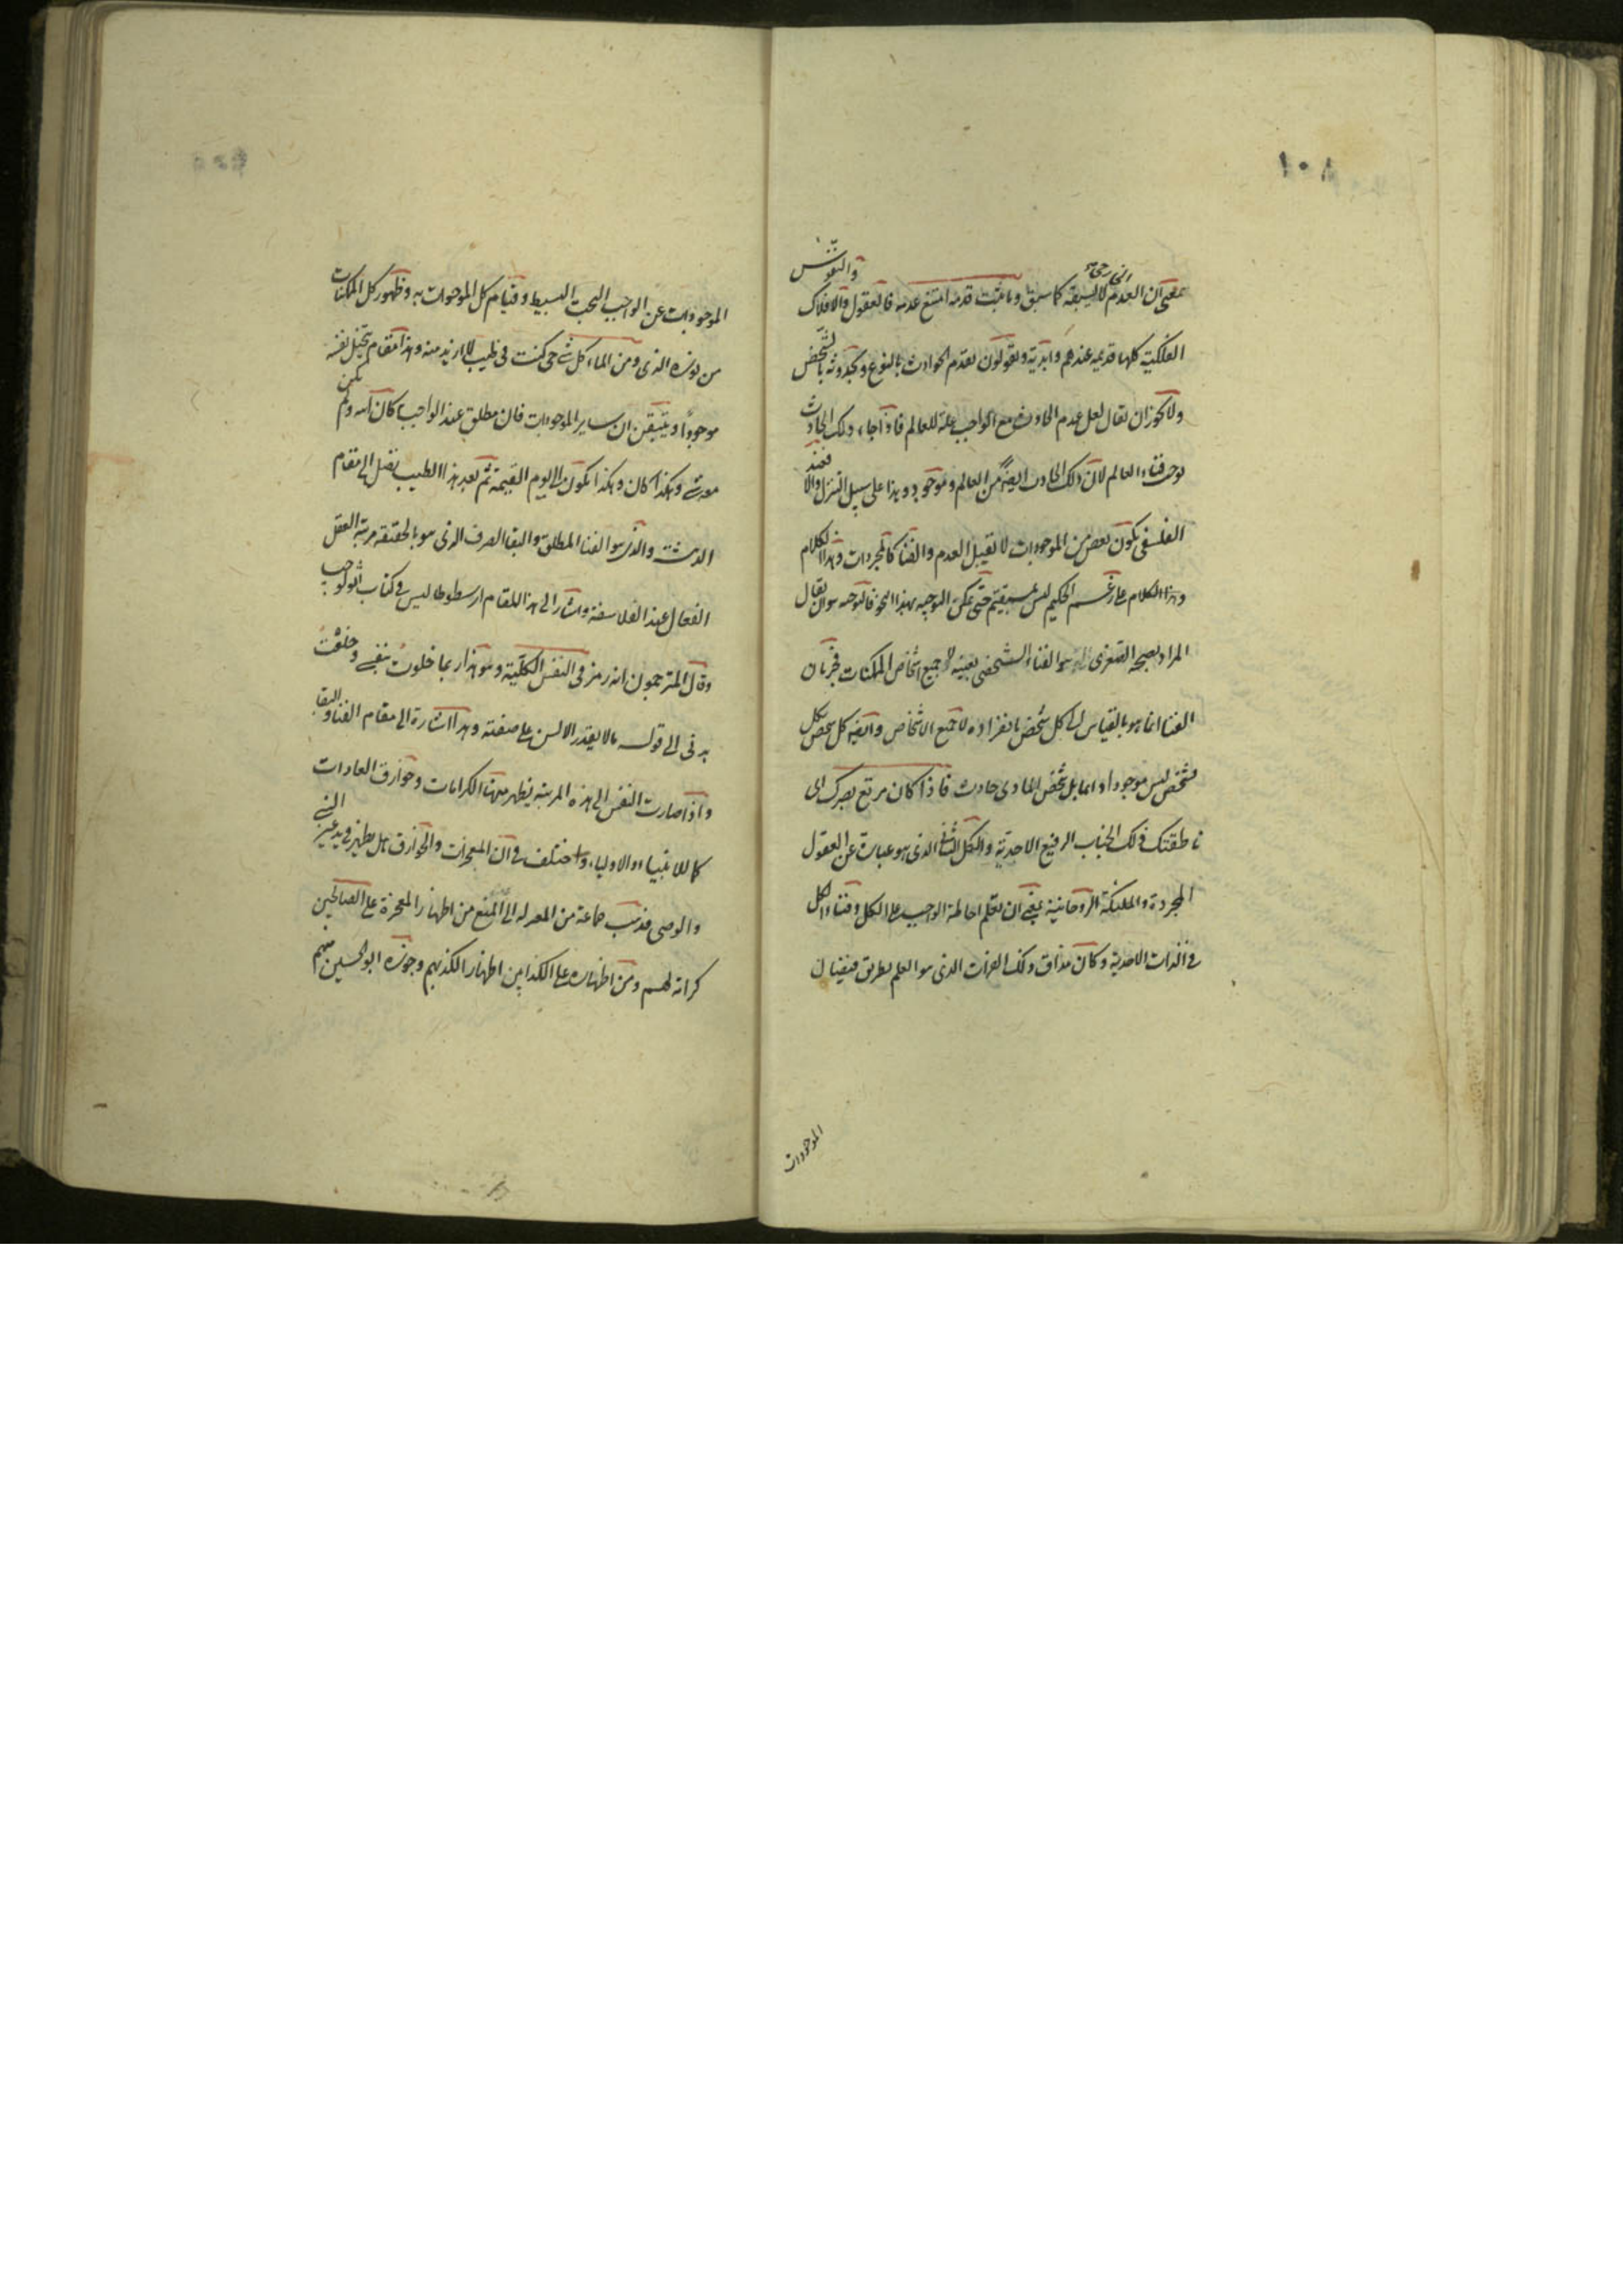 ١٠٨
بمعنى ان العدم الخارجى لا يسبقه كما سبق وما ثبت قدمه امتنع عدمه فالعقول والافلاك والنفوس
الفلكية كلها قديمه عندهم وابدية ويقولون بقدم الحوادث بالنوع وبحدوثه بالشخص
ولا يجوز ان يقال لعل عدم الحادث مع الواجب علة للعالم فاذا جاء ذلك الحادث
يوجد فناء العالم لان ذلك الحادث ايضا من العالم وموجود وهذا على سبيل التنزل والا فعند
الفلسفى يكون بعض من الموجودات لا يقبل العدم والفنا كالمجردات وهذا الكلام
وهذا الكلام على زعم الحكيم ليس بمستقيم حتى يمكن التوجيه بهذا النحو فالتوجيه هو ان يقال
المراد بصحة الصغرى هو الفناء الشخصى بعينه لا جميع اشخاص الممكنات فجريان
الفنا انما هو بالقياس الى كل شخص بانفراده لا جميع الاشخاص وايضا كل شخص بكل
شخص ليس موجودا دائما بل شخص المادى حادث فاذا كان مرتع بصرك الى
ناطقتك ذلك الجناب الرفيع الاحدية والكل الثانى الذى هو عبارة عن العقول
المجردة والملئكة الروحانية ينبغى ان تعلم احاطة الواجب على الكل وفناء الكل
فى الذات الاحدية وكان مذاق ذلك الفرات الذى هو العلم بطريق فيضان
الموجودات
الموجودات عن الواجب البحت البسيط وقيام كل الموجودات به وظهور كل الممكنات
من نوره الذى ومن الماء كل شئ حى كنت فى طيب لا ازيد منه وهذا مقام يتخيل نفسه
موجودا ويتيقن ان ساير الموجودات فان مطلق عند الواجب كان الله ولم يكن
معه شئ وهكذا كان وهكذا يكون الى اليوم القيمة ثم بعد هذا الطيب يصل الى مقام
الدهشة والذى هو الفنا المطلق والبقا الصرف الذى هو بالحقيقة مرتبة العقل
الفعال عند الفلاسفة واشار الى هذا المقام ارسطوطاليس فى كتاب اثولوجيا
وقال المترجمون انه رمز فى النفس الكلية وهو هذا ربما خلوت بنفسى وخلعت
بدنى الى قوله ما لا يقدر الالسن على صفته وهذا اشارة الى مقام الفنا والبقا
واذا صارت النفس الى هذه المرتبة يظهر منها الكرامات وخوارق العادات
كما للانبياء والاولياء واختلف فى ان المعجزات والخوارق هل يظهر فى يد غير النبى
والوصى فذهب جماعة من المعتزلة الى المنع من اظهار المعجزة على الصالحين
كرامة لهم ومن اظهاره على الكذابين اظهار الكذبهم وجوزه ابو الحسين منهم